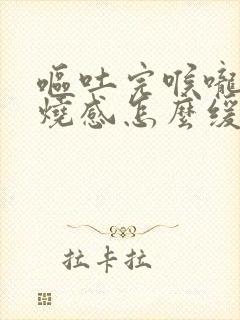 嘔吐完喉嚨
燒感怎麼緩
拉卡拉